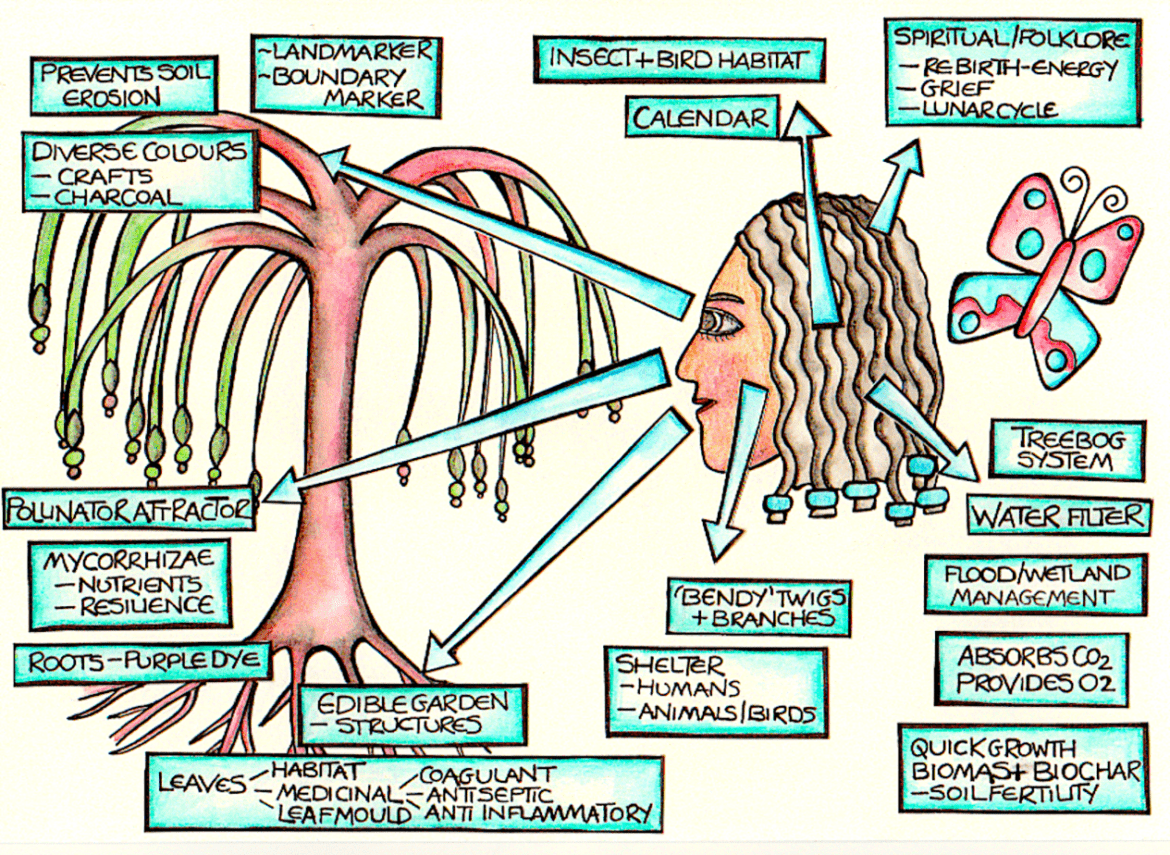 PREVENTS SOIL
EROSION
~LANDMARKER
~BOUNDARY
MARKER
INSECT+BIRD HABITAT
CALENDAR
SPIRITUAL/FOLKLORE
– REBIRTH-ENERGY
– GRIEF
– LUNAR CYCLE
DIVERSE COLOURS
– CRAFTS
– CHARCOAL
POLLINATOR ATTRACTOR
MYCORRHIZAE
– NUTRIENTS
– RESILIENCE
ROOTS – PURPLE DYE
EDIBLE GARDEN
– STRUCTURES
LEAVES – HABITAT
– MEDICINAL – COAGULANT
– ANTISEPTIC
– LEAFMOULD – ANTI INFLAMMATORY
'BENDY' TWIGS
+ BRANCHES
SHELTER
– HUMANS
– ANIMALS/BIRDS
TREEBOG
SYSTEM
WATER FILTER
FLOOD/WETLAND
MANAGEMENT
ABSORBS CO2
PROVIDES O2
QUICK GROWTH
BIOMAS+ BIOCHAR
– SOIL FERTILITY